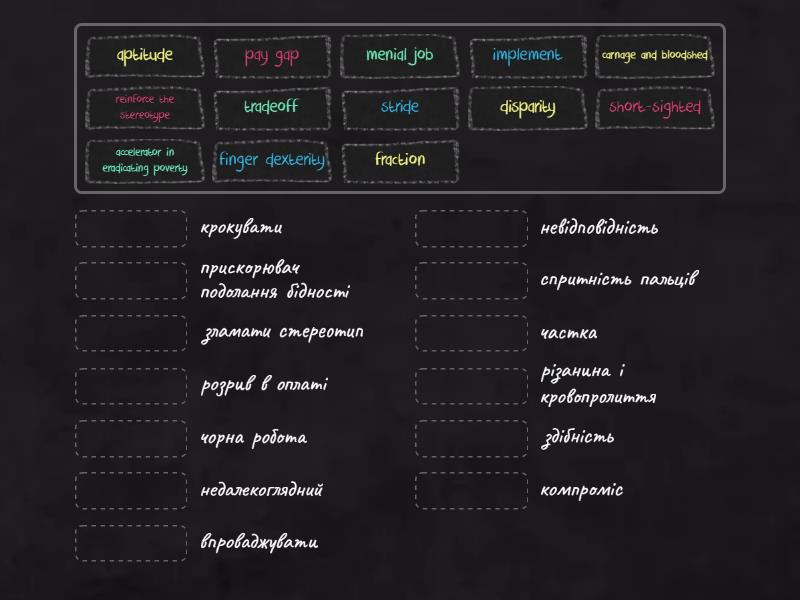 aptitude
pay gap
menial job
implement
carnage and bloodshed
reinforce the
stereotype
tradeoff
stride
disparity
short-sighted
accelerator in
eradicating poverty
finger dexterity
fraction
крокувати
прискорювач
подолання бідності
зламати стереотип
розрив в оплаті
чорна робота
недалекоглядний
впроваджувати
невідповідність
спритність пальців
частка
різанина і
кровопролиття
здібність
компроміс